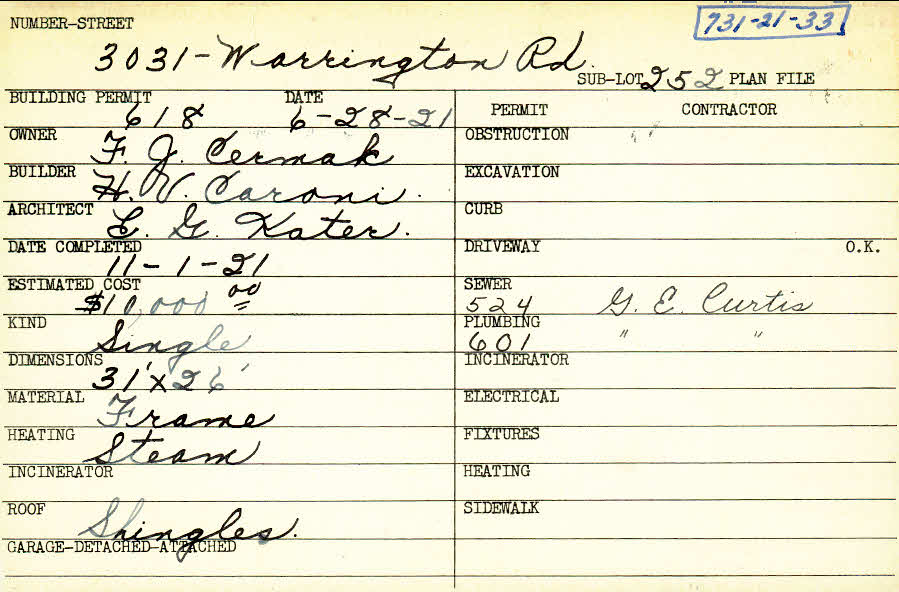 731-21-33
NUMBER-STREET
3031-Warrington Rd.
SUB-LOT 252 PLAN FILE
BUILDING PERMIT DATE
618 6-28-21
PERMIT CONTRACTOR
OWNER F. J. Cermak
OBSTRUCTION "
BUILDER H. V. Caroni.
EXCAVATION
ARCHITECT E. G. Kater.
CURB
DATE COMPLETED
11-1-21
DRIVEWAY O.K.
ESTIMATED COST
$10,000 00
SEWER
524 G. E. Curtis
KIND Single
PLUMBING
601 " "
DIMENSIONS
31' x 26'
INCINERATOR
MATERIAL Frame
ELECTRICAL
HEATING Steam
FIXTURES
INCINERATOR
HEATING
ROOF Shingles.
SIDEWALK
GARAGE-DETACHED-ATTACHED